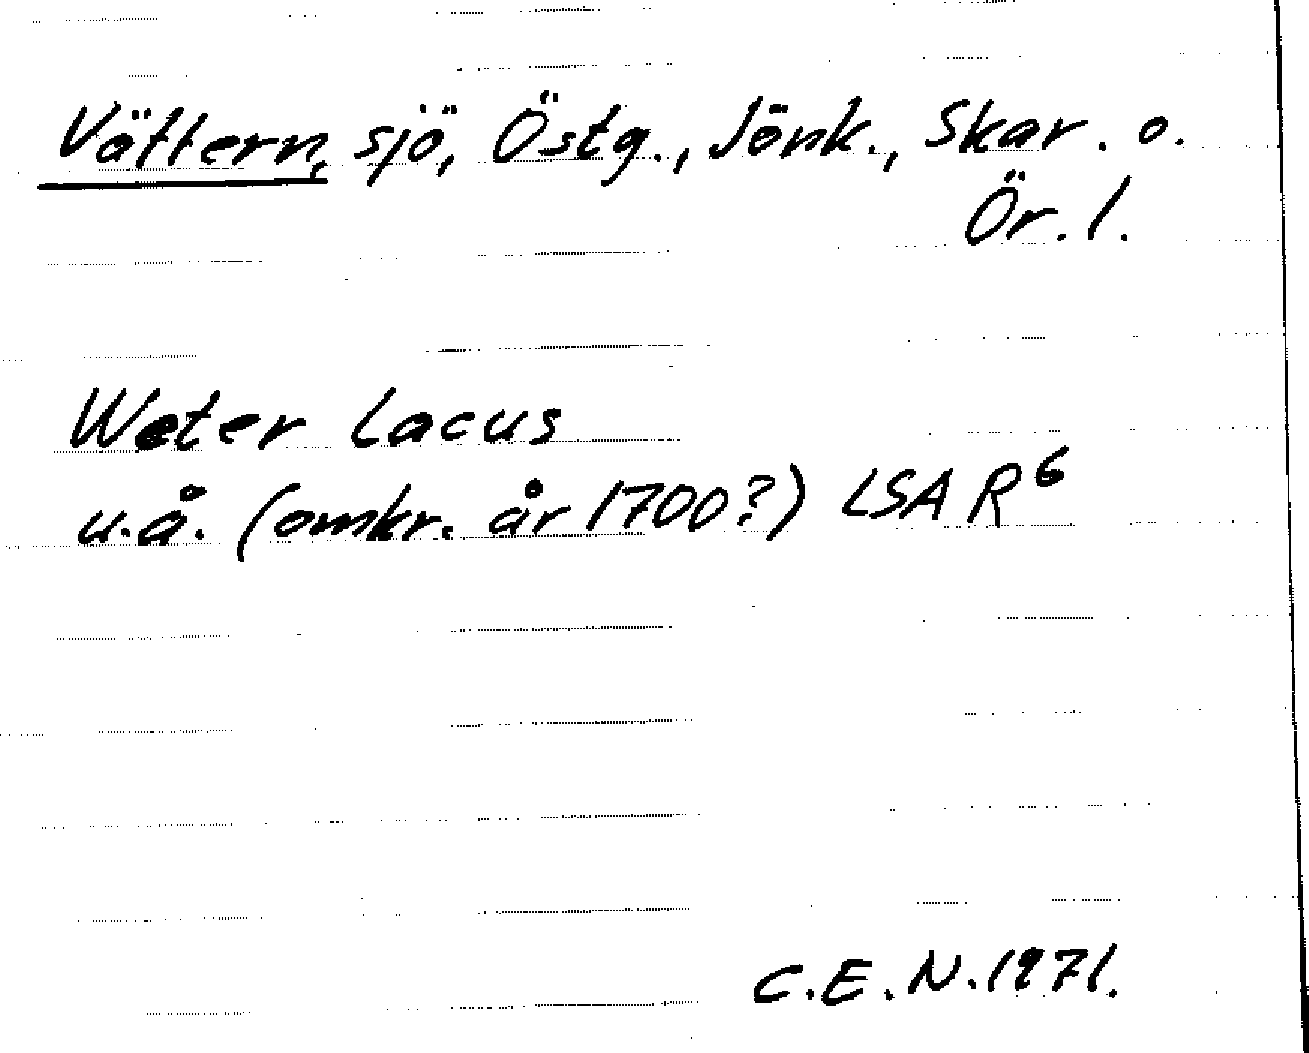 Vättern, sjö, Östg., Jönk., Skar. o.
Ör. l.
Weter Lacus
u.å. (omkr. år 1700?) LSA R⁶
C.E.N. 1971.